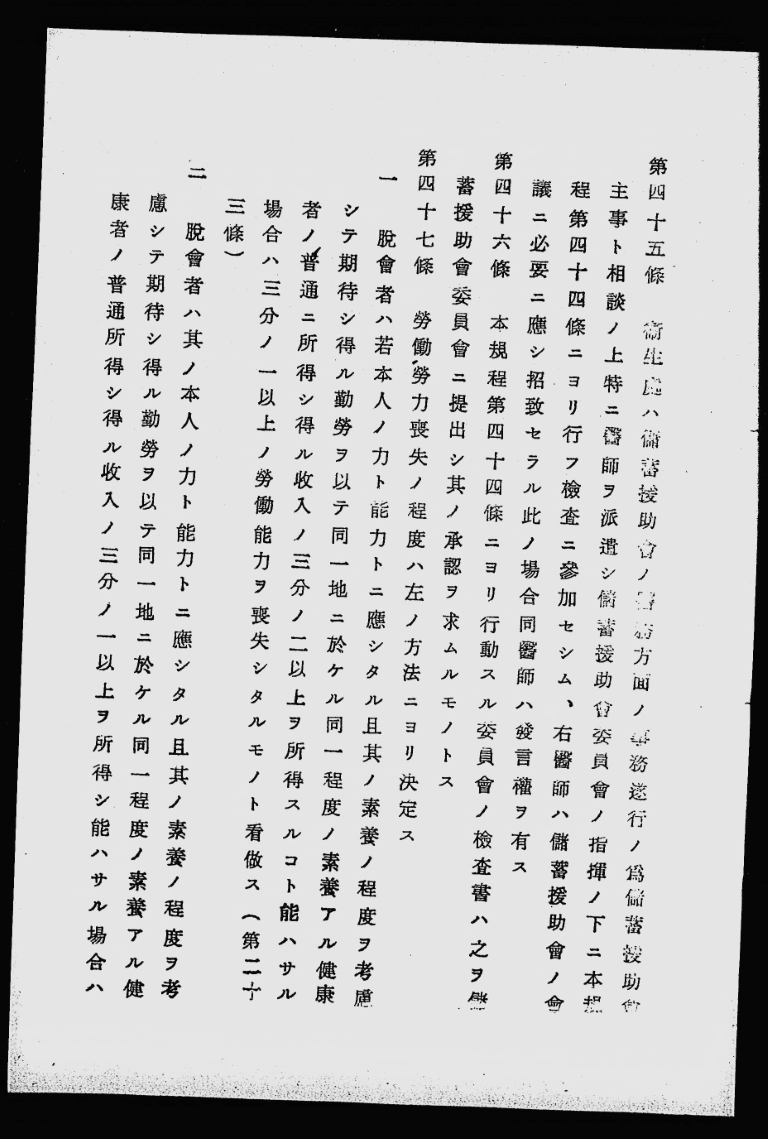 第四十五條　衞生處ハ儲蓄援助會ノ醫務方面ノ事務遂行ノ爲儲蓄援助會
主事ト相談ノ上特ニ醫師ヲ派遣シ儲蓄援助會委員會ノ指揮ノ下ニ本規
程第四十四條ニヨリ行フ檢査ニ參加セシム、右醫師ハ儲蓄援助會ノ會
議ニ必要ニ應シ招致セラル此ノ場合同醫師ハ發言權ヲ有ス
第四十六條　本規程第四十四條ニヨリ行動スル委員會ノ檢査書ハ之ヲ儲
蓄援助會委員會ニ提出シ其ノ承認ヲ求ムルモノトス
第四十七條　勞働勞力喪失ノ程度ハ左ノ方法ニヨリ決定ス
一　脫會者ハ若本人ノ力ト能力トニ應シタル且其ノ素養ノ程度ヲ考慮
シテ期待シ得ル勤勞ヲ以テ同一地ニ於ケル同一程度ノ素養アル健康
者ノ普通ニ所得シ得ル收入ノ三分ノ二以上ヲ所得スルコト能ハサル
場合ハ三分ノ一以上ノ勞働能力ヲ喪失シタルモノト看做ス（第二十
三條）
二　脫會者ハ其ノ本人ノ力ト能力トニ應シタル且其ノ素養ノ程度ヲ考
慮シテ期待シ得ル勤勞ヲ以テ同一地ニ於ケル同一程度ノ素養アル健
康者ノ普通所得シ得ル收入ノ三分ノ一以上ヲ所得シ能ハサル場合ハ